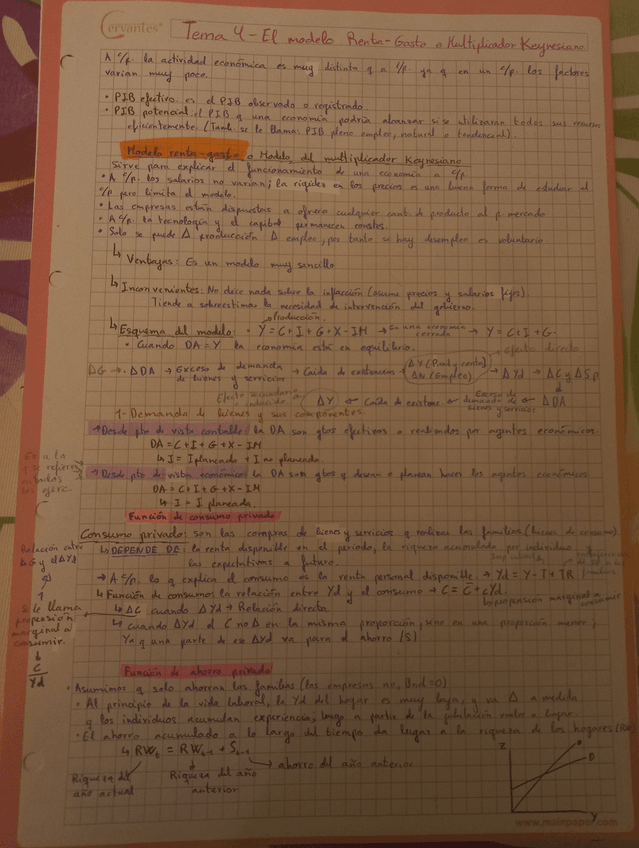 Cervantes
Tema 4 - El modelo Renta-Gasto o Multiplicador Keynesiano
A c/p la actividad económica es muy distinta q a l/p ya q en un c/p los factores
varian muy poco.
• PIB efectivo: es el PIB observado o registrado.
• PIB potencial: el PIB q una economía podría alcanzar si se utilizaran todos sus recursos
eficientemente. (Tamb. se le llama PIB pleno empleo, natural o tendencial).
Modelo renta-gasto o Modelo del multiplicador Keynesiano
Sirve para explicar el funcionamiento de una economía a c/p
• A c/p: los salarios no varian; la rigidez en los precios es una buena forma de estudiar el
c/p pero limita el modelo.
• Las empresas están dispuestas a ofrecer cualquier cant. de producto al p mercado
• A c/p: la tecnología y el capital permanecen constes.
• Solo se puede Δ producción Δ empleo, por tanto si hay desempleo es voluntario
↳ Ventajas: Es un modelo muy sencillo
↳ Inconvenientes: No dice nada sobre la inflacción (asume precios y salarios fijos).
Tiende a sobreestimar la necesidad de intervención del gobierno.
Producción
↳ Esquema del modelo: • Y = C+I+G+X-IM → En una economía cerrada → Y = C+I+G
• Cuando DA=Y la economía está en equilibrio.
efecto directo
ΔG → ΔDA → Exceso de demanda de bienes y servicios → Caida de existencias → ΔY (Prod y renta) ΔN (Empleo) → ΔYd → ΔC y ΔSp
Efecto secundario inducido ΔY ← Caida de existenc ← Exceso de demanda de bienes y servicios ← ΔDA
1- Demanda de bienes y sus componentes.
→ Desde pto de vista contable: la DA son gtos efectivos o realizados por agentes económicos.
DA = C+I+G+X-IM
↳ I = I planeada + I no planeada.
→ Desde pto de vista económico: la DA son gtos q desean o planean hacer los agentes económicos.
DA = C+I+G+X-IM
↳ I = I planeada.
Función de consumo privado
Consumo privado: son las compras de bienes y servicios q realizan las familias (bienes de consumo).
↳ DEPENDE DE: la renta disponible en el período, la riqueza acumulada por individuo
las expectativas a futuro.
→ A c/p, lo q explica el consumo es la renta personal disponible → Yd = Y - T + TR
↳ Función de consumo: la relación entre Yd y el consumo → C = C + cYd
propensión marginal a consumir
↳ ΔC cuando ΔYd → Relación directa.
↳ cuando ΔYd el C no Δ en la misma proporción, sino en una proporción menor;
Ya q una parte de ese ΔYd va para el ahorro (S)
Relación entre
ΔC y el ΔYd
Se le llama
propensión
marginal a
consumir.
C
Yd
Función de ahorro privado
• Asumimos q solo ahorran las familias (las empresas no, Bnd=0)
• Al principio de la vida laboral, la Yd del hogar es muy baja, y va Δ a medida
q los individuos acumulan experiencia; luego a partir de la jubilación
• El ahorro acumulado a lo largo del tiempo da lugar a la riqueza de los hogares (RW)
↳ RWt = RWt-1 + St-1
ahorro del año anterior
Riqueza del año actual
Riqueza del año anterior
Z
D
Y
www.mainpaper.com